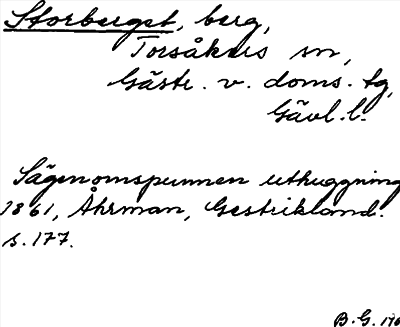 Storberget, berg,
Torsåkers sn,
Gästr. v. doms. tg,
Gävl. l.
Sägenomspunnen uthuggning
1861, Åhrman, Gestrikland.
s. 177.
B. G.